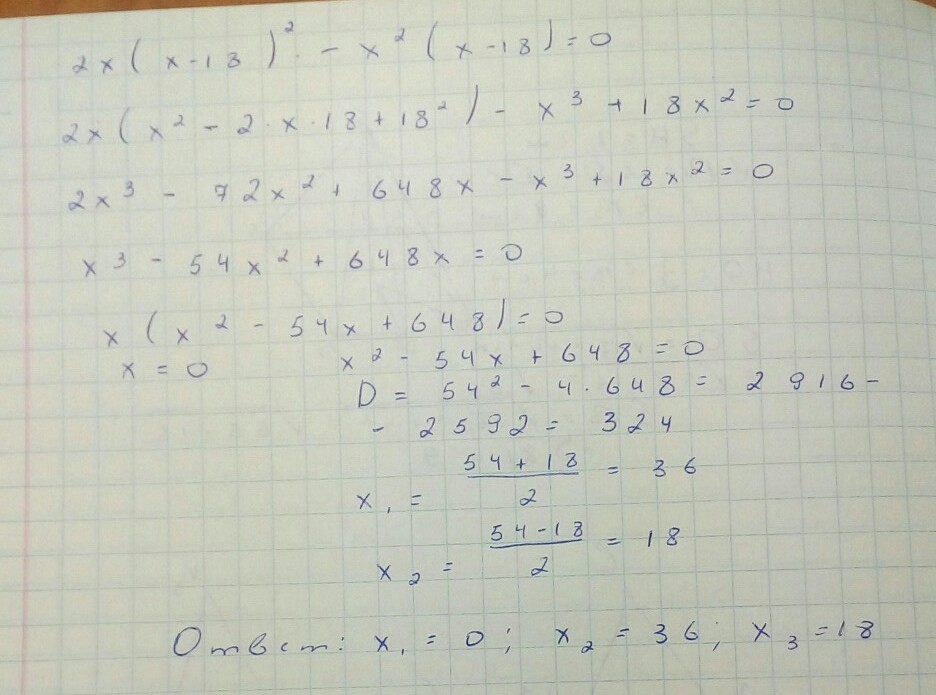 2x(x-18)² - x²(x-18)=0
2x(x² - 2·x·18+18²) - x³ + 18x² = 0
2x³ - 72x² + 648x - x³ + 18x² = 0
x³ - 54x² + 648x = 0
x(x² - 54x + 648) = 0
x = 0 x² - 54x + 648 = 0
D = 54² - 4·648 = 2916 -
- 2592 = 324
x₁ = (54+18)/2 = 36
x₂ = (54-18)/2 = 18
Ответ: x₁ = 0; x₂ = 36; x₃ = 18